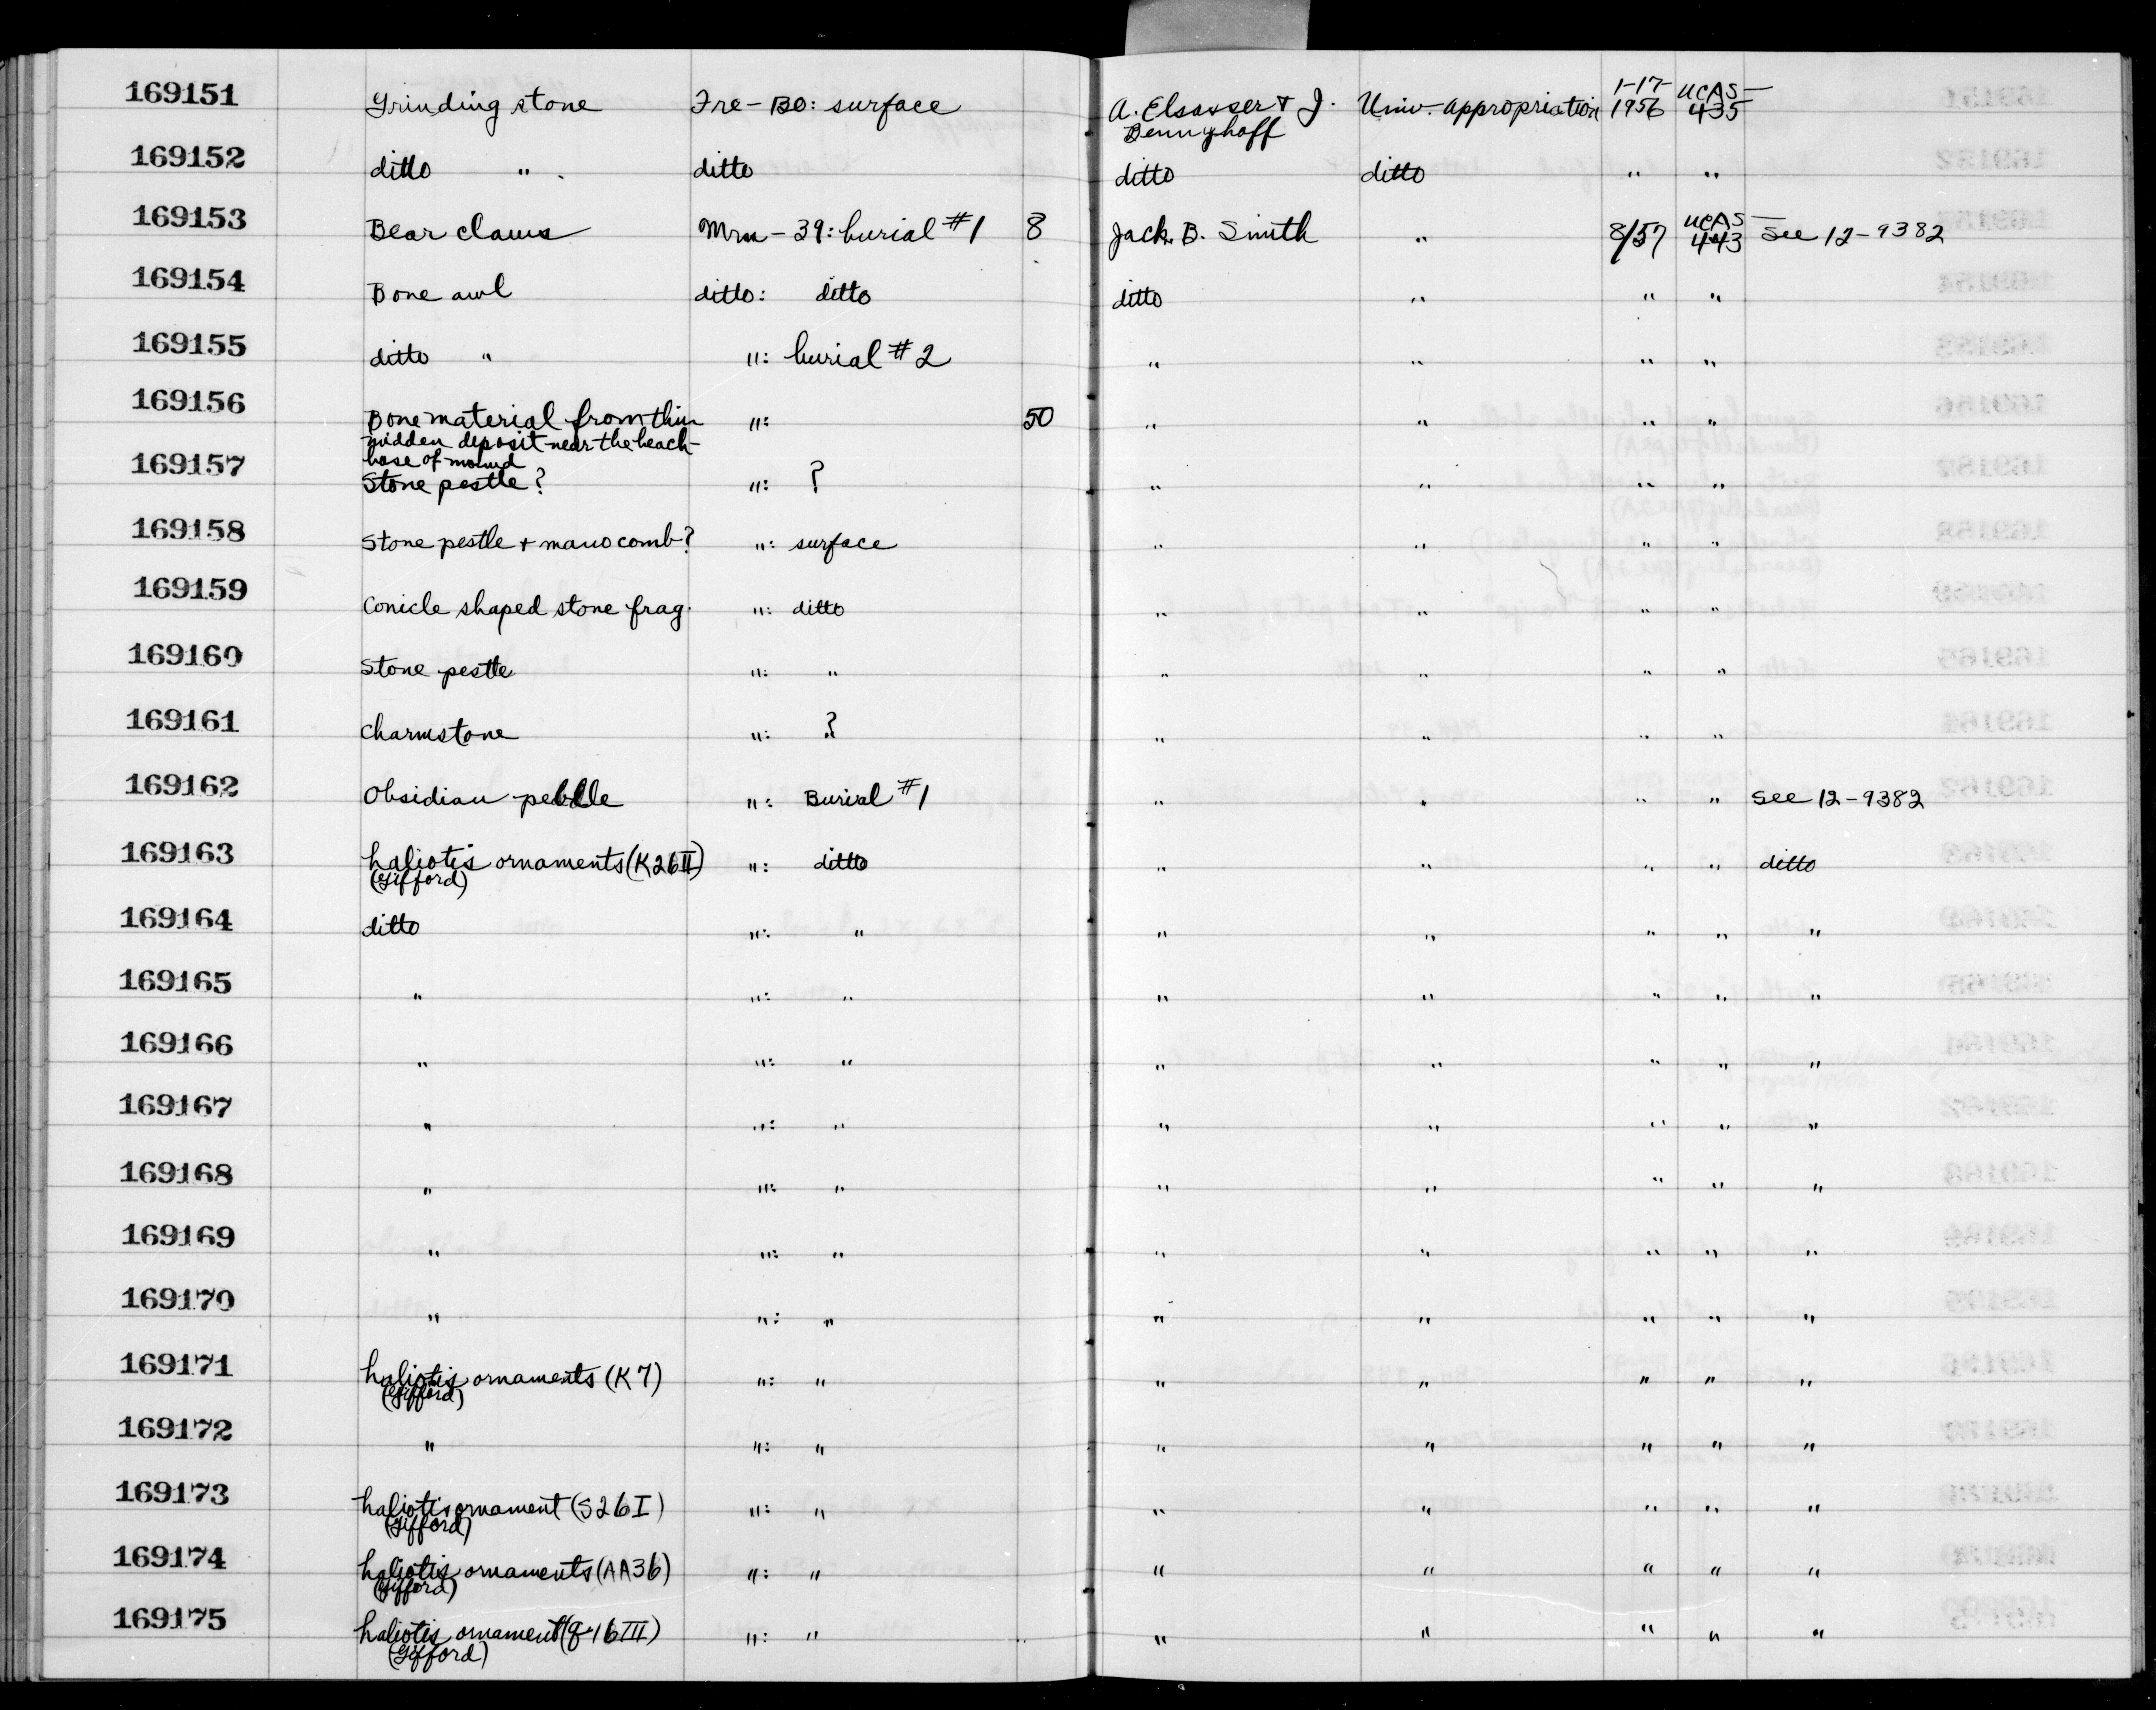 169151 Grinding stone Fre-Bo: surface A. Elsasser + J. Bennyhoff Univ. appropriation 1-17-1956 UCAS-435
169152 ditto " . ditto ditto ditto " "
169153 Bear claws Mrn-39: burial #1 8 Jack B. Smith " 8/57 UCAS-443 See 12-9382
169154 Bone awl ditto: ditto ditto " " "
169155 ditto " ": burial #2 " " " "
169156 Bone material from thin ": 50 " " " "
midden deposit near the beach-
base of mound
169157 Stone pestle? ": ? " " " "
169158 Stone pestle + mano comb? ": surface " " " "
169159 Conicle shaped stone frag. ": ditto " " " "
169160 Stone pestle ": " " " " "
169161 Charmstone ": ? " " " "
169162 Obsidian pebble ": Burial #1 " " " " See 12-9382
169163 haliotis ornaments (K2bII) ": ditto " " " " ditto
(Gifford)
169164 ditto ": " " " " " "
169165 " ": " " " " " "
169166 " ": " " " " " "
169167 " ": " " " " " "
169168 " ": " " " " " "
169169 " ": " " " " " "
169170 " ": " " " " " "
169171 haliotis ornaments (K7) ": " " " " " "
(Gifford)
169172 " ": " " " " " "
169173 haliotis ornament (S2bI) ": " " " " " "
(Gifford)
169174 haliotis ornaments (AA3b) ": " " " " " "
(Gifford)
169175 haliotis ornament ": " " " " " "
(Gifford)